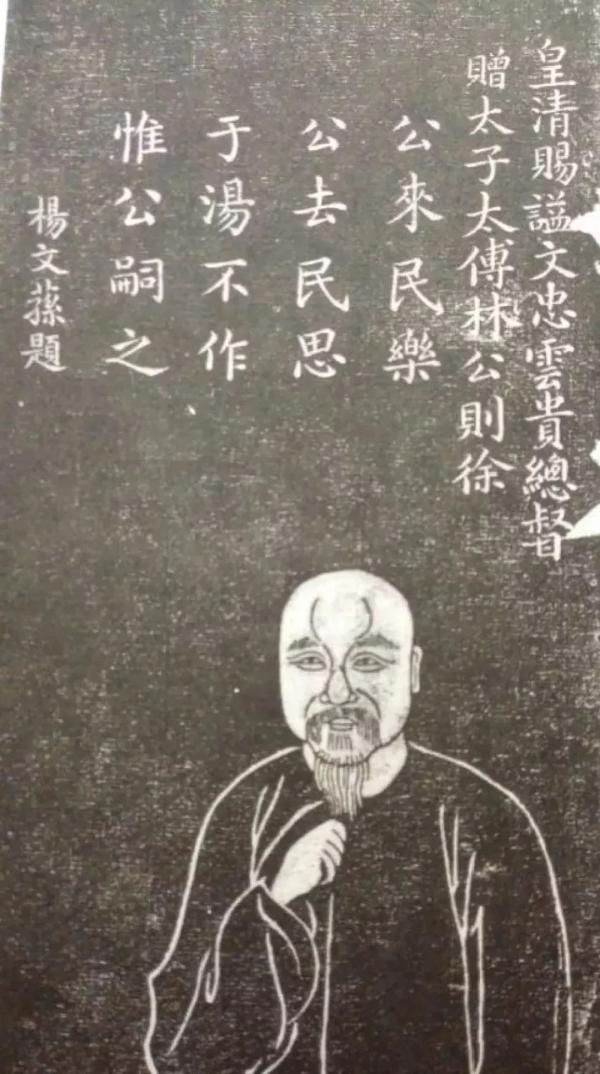 皇清賜諡文忠雲貴總督
贈太子太傅林公則徐
公來民樂
公去民思
于湯不作
惟公嗣之
楊文蓀題